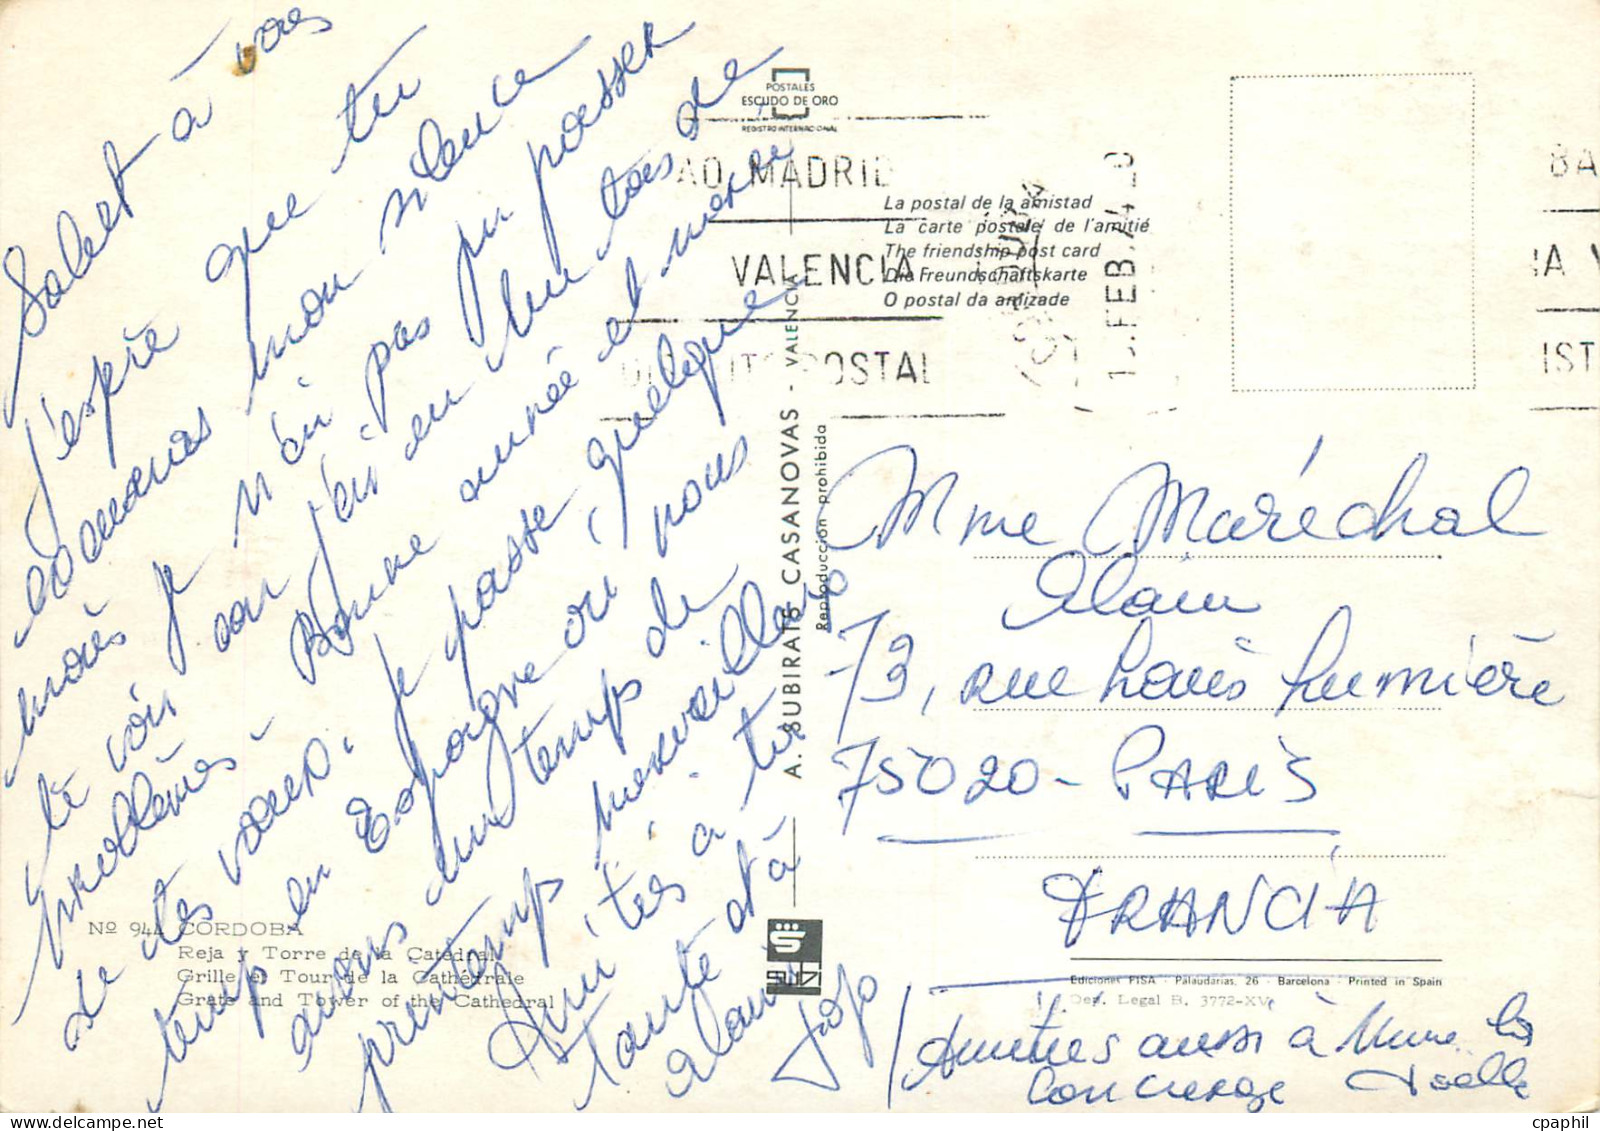 Salut à vous
j'espère que tu
excuseras mon silence
mais je n'ai pas pu passer
te voir car j'ai eu un tas de
problèmes. Bonne année et merci
de tes voeux. Je passe quelque
temp en Espagne où nous
avons un temps de
printemps merveilleux
Amitiés a ta
tante et à
Alain
Jojo
POSTALES
ESCUDO DE ORO
REGISTRO INTERNACIONAL
MADRID
VALENCIA
POSTAL
FEB. 74
BA
IA V
IST
La postal de la amistad
La carte postale de l'amitié
The friendship post card
Die Freundschaftskarte
O postal da amizade
A. SUBIRATS CASANOVAS - VALENCIA
Reproducción prohibida
Mme Maréchal
Alain
73, rue Louis Lumière
75020 - PARIS
FRANCIA
Nº 944 CORDOBA
Reja y Torre de la Catedral
Grille et Tour de la Cathédrale
Grate and Tower of the Cathedral
Ediciones FISA - Palaudarias, 26 - Barcelona - Printed in Spain
Dep. Legal B. 3772-XV
Amitiés aussi à Mme la
Concierge
© cpaphil